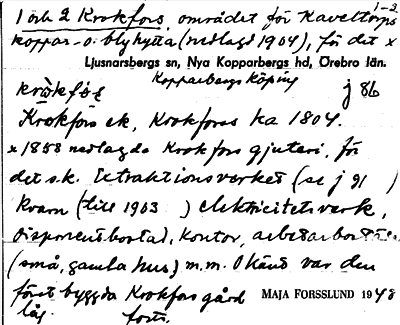 1-2
1 och 2 Krokfors, området för Kaveltorps
koppar- o. blyhytta (nedlagd 1904), för det x
Ljusnarsbergs sn, Nya Kopparbergs hd, Örebro län.
Kopparbergs köping
j 86
Krokfors ek, Krokforss ka 1804.
x 1858 nedlagda Krokfors gjuteri, för
det s.k. Extraktionsverket (se j 91 )
kvarn (till 1903 ) elektricitetsverk,
disponentbostad, kontor, arbetarbostäder
(små, gamla hus) m.m. Okänt var den
först byggda Krokfors gård
MAJA FORSSLUND 1948
låg. forts.